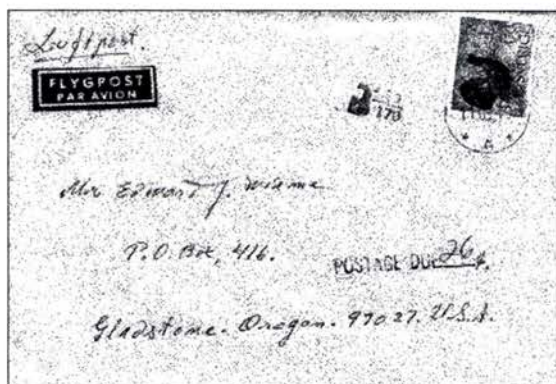 Luftpost.
FLYGPOST
PAR AVION
Mr Edward J. Wieme
P.O. Box, 416.
POSTAGE DUE 26¢.
Gladstone. Oregon. 97027. U.S.A.